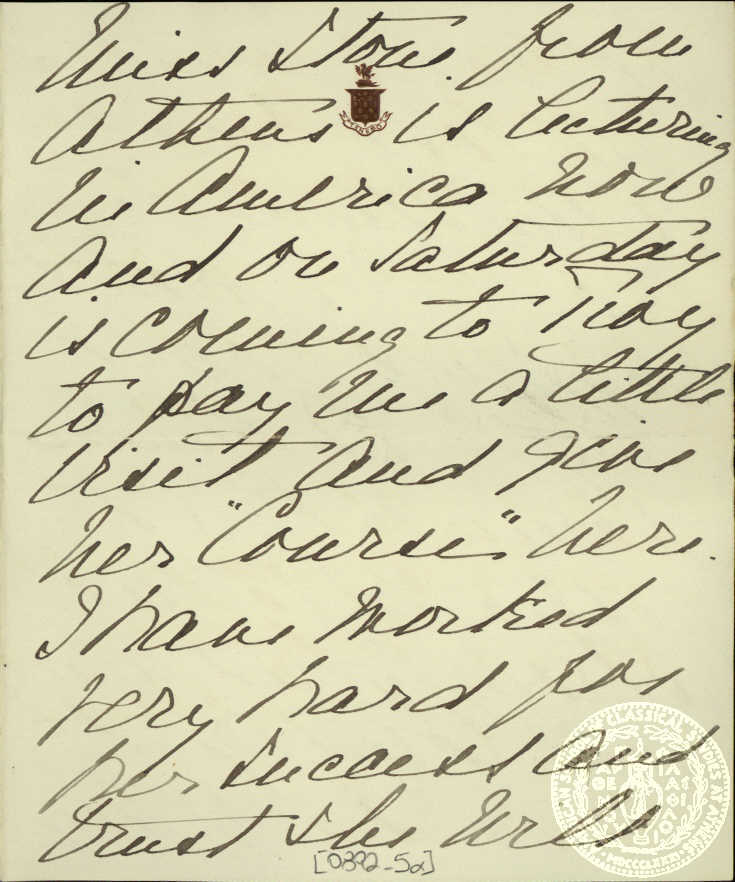 Miss Stone. from
Athens is lecturing
in America now
and on Saturday
is coming to Troy
to pay me a little
visit and give
her "Course" here.
I have worked
very hard for
her success and
trust she will
[0392-5a]
CLASSICAL STUDIES AT ATHENS
MDCCCLXXXI